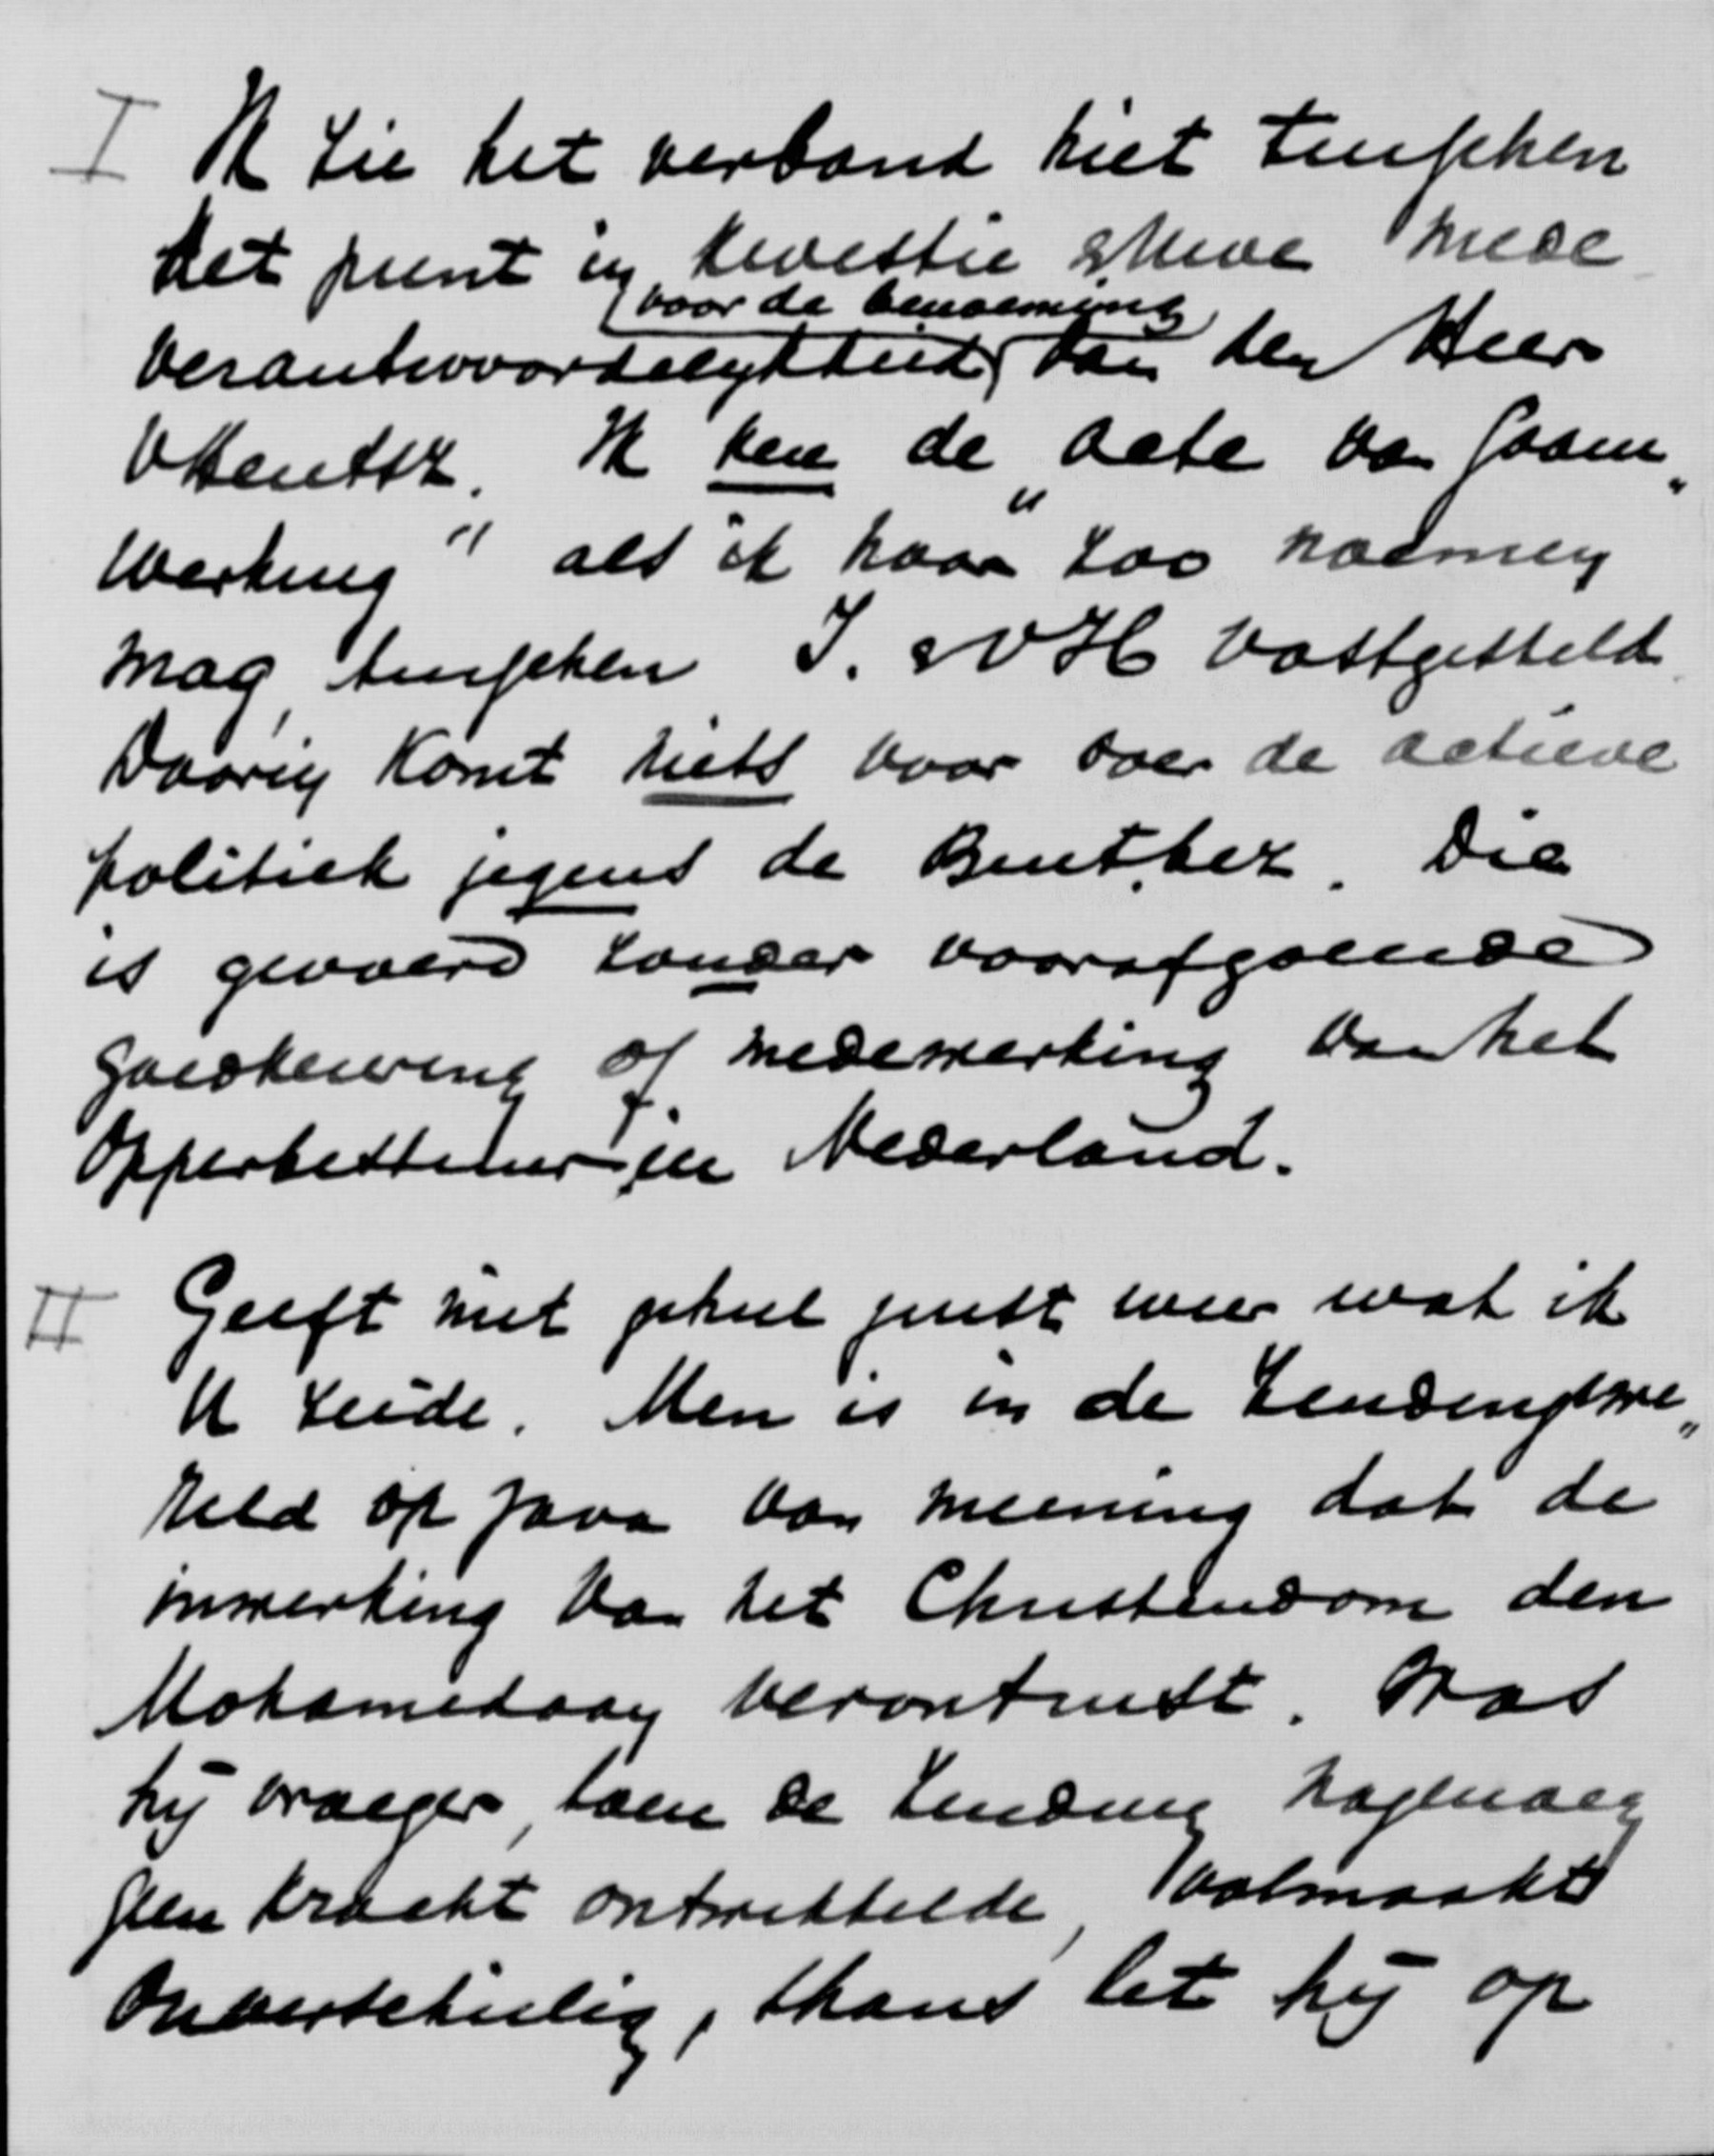 I Ik zie het verband niet tusschen
het punt in kwestie & Uwe mede
voor de benoeming
verantwoordelijkheid van den Heer
v Heutsz. Ik ken de „acte van saam„
werking" als ik haar zoo noemen
mag, tusschen I. & VH vastgesteld.
Daarin komt niets voor over de actieve
politiek jegens de Buit.bez. Die
is gevoerd zonder voorafgaande
goedkeuring of medewerking van het
Opperbestuur in Nederland.
II Geeft niet geheel juist weer wat ik
U zeide. Men is in de Zendingswe„
reld op Java van meening dat de
inwerking van het Christendom den
Mohamedaan verontrust. Was
hij vroeger, toen de Zending nagenoeg
geen kracht ontwikkelde, volmaakt
onverschillig, thans let hij op